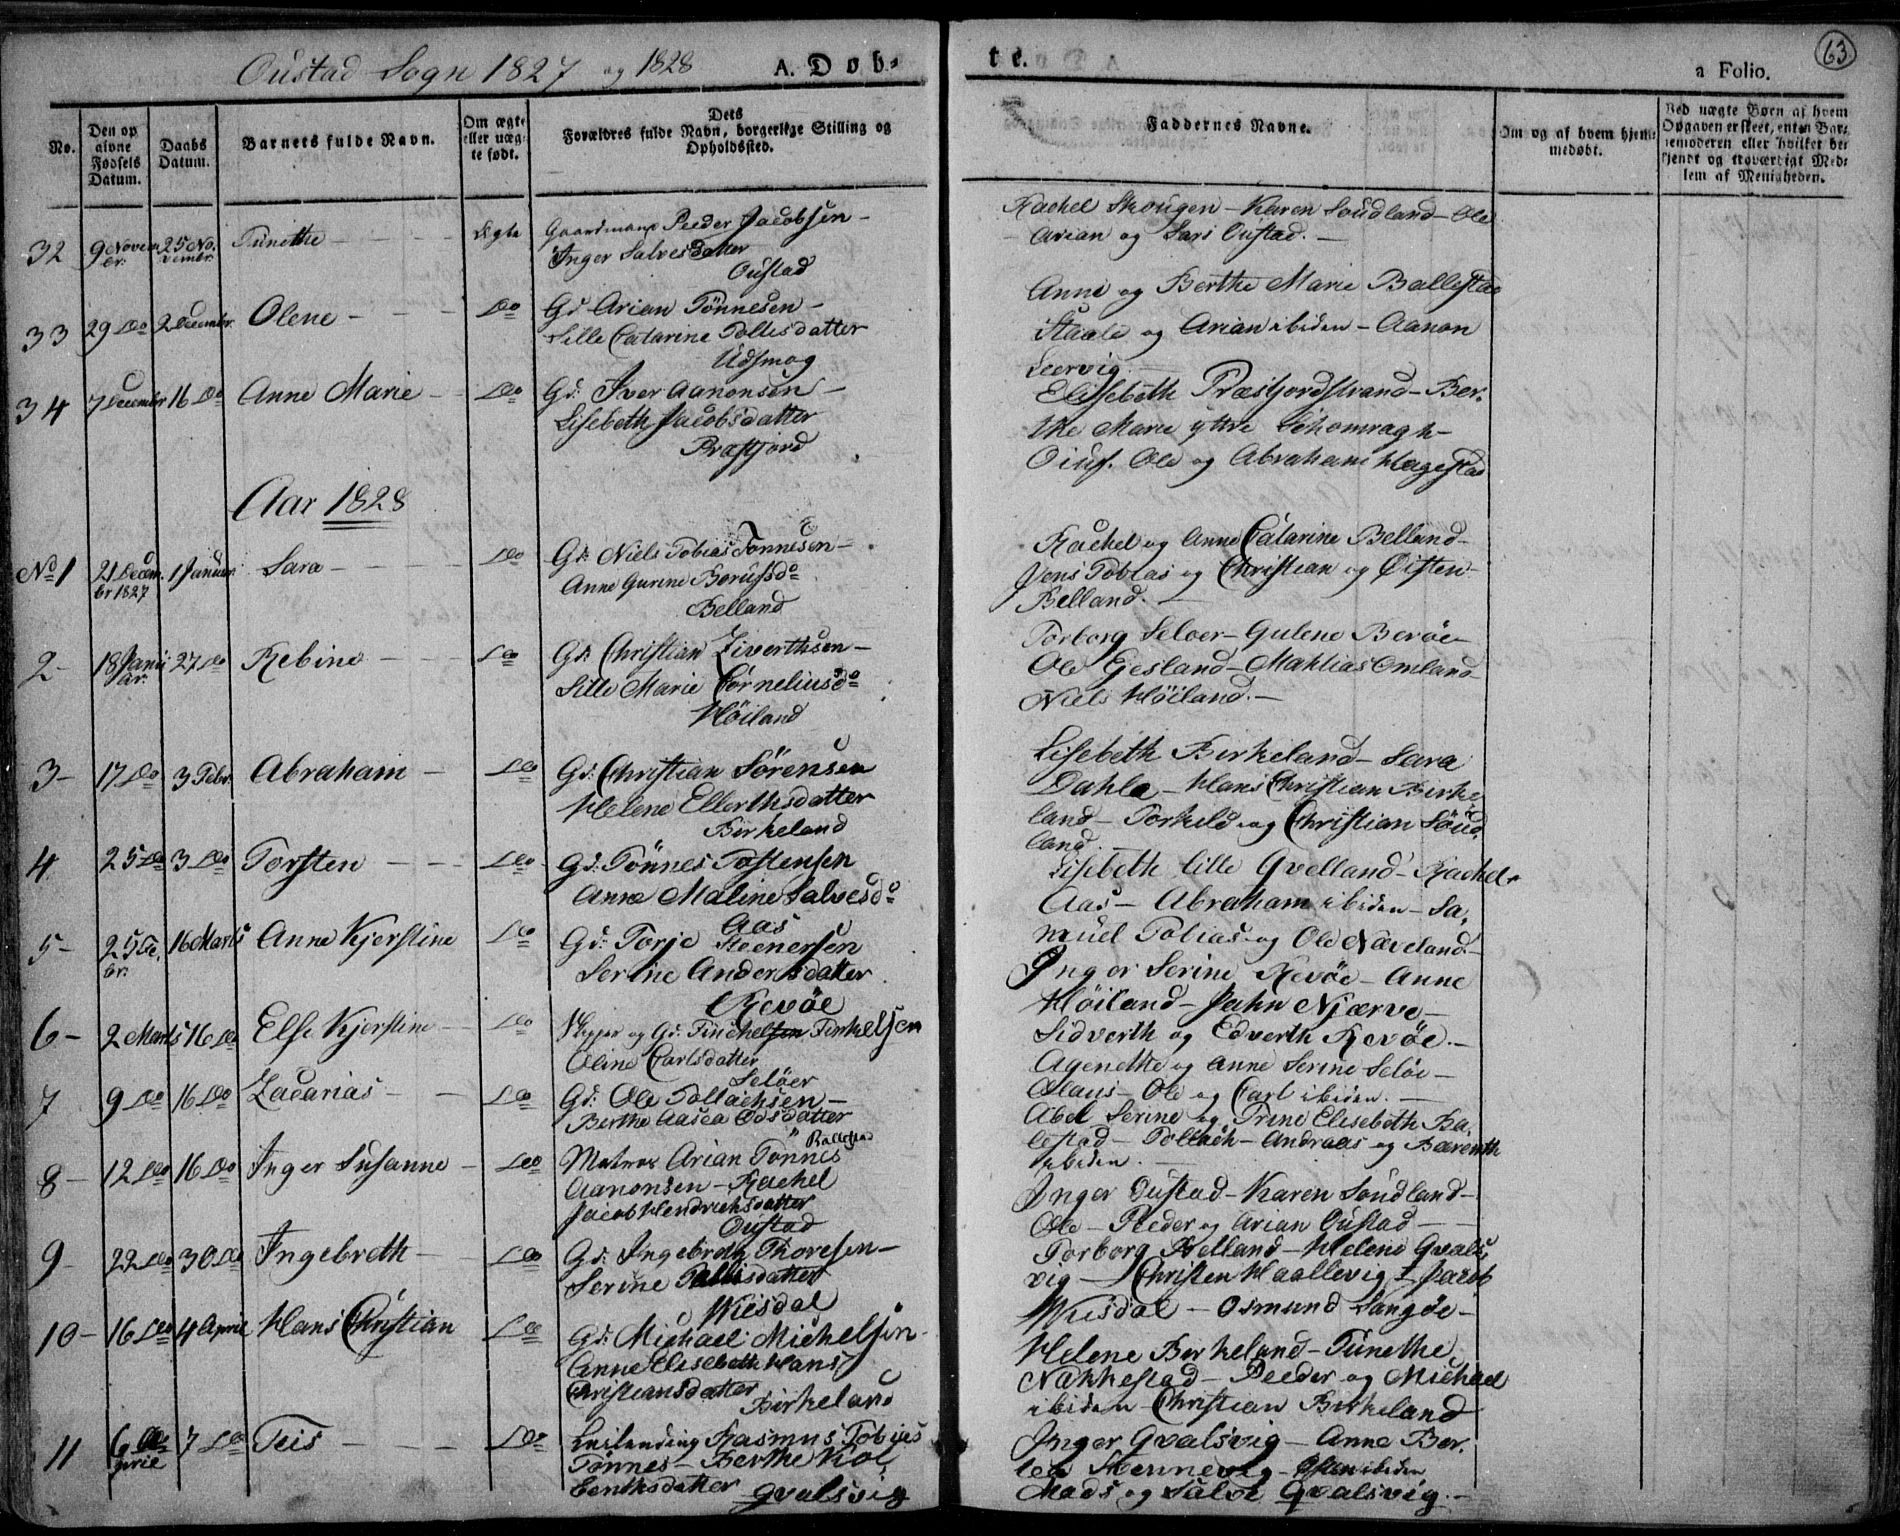 Oustad Sogn 1827 og 1828
A. Døb-
te.
a Folio.
63
No.
Den op
givne
Fødsels
Datum.
Daabs
Datum.
Barnets fulde Navn.
Om ægte
eller uæg-
te født.
Dets
Forældres fulde Navn, borgerlige Stilling og
Opholdssted.
Faddernes Navne.
Om og af hvem hjem-
medøbt.
Ved uægte Børn af hvem
Opgaven er skeet, enten Bar-
nemoderen eller hvilket be-
kjendt og troværdigt Med-
lem af Menigheden.
32 9 Novem 25 No- Tunethe Ægte Gaardmand Peeder Jacobsen
br. vembr. Inger Salvesdatter
Oustad
Rachel Skougen - Karen Soudland - Ole
Arian og Lars Oustad. -
33 29 Do 2 Decembr. Olene - Do Gd. Arian Tönnesen -
Lille Catarine Tollisdatter
Udsmog
Anne og Berthe Marie Ballestad
Staale og Arian ibiden - Aanon
Leervig -
34 7 Decembr 16 Do Anne Marie - Do Gd. Iver Aanonsen -
Lisebeth Jacobsdatter
Præstfjord
Elisebeth Præstfjordstrand - Ber-
the Marie ytre
Ole og Abraham Hægestad
Aar 1828
No 1 21 Decem- 1 Januar Sara - Do Gd. Niels Tobias Tönnesen -
br 1827 Anne Gurine Berussdr
Belland
Rachel og Anne Catarine Belland -
Jens Tobias og Christian og Öisten
Belland. -
2 - 18 Janu- 27 Do Rebine - Do Gd. Christian Ziverthsen -
ar. Lille Marie Corneliusdr
Höiland
Torborg Seloer - Gulene Beröe -
Ole Gesland - Mathias Omland
Niels Höiland. -
3 - 17 Do 3 Febr. Abraham - Do Gd. Christian Sörensen
Helene Ellerthsdatter
Birkeland
Lisebeth Birkeland - Sara
Dahle - Hans Christian Birke-
land - Torkeld og Christian Söud-
land.
4 25 Do 3 Do Torsten - Do Gd. Tönnes Tostensen
Anne Maline Salvesdr
Aas
Lisebeth lille Qvelland - Rachel
Aas - Abraham ibiden - Sa-
muel Tobias og Ole Næveland -
5 - 25 Fe- 16 Marts Anne Kjerstine Do Gd. Torje Steenersen
br. Serine Andersdatter
Revöe
Inger Serine Revöe - Anne
Höiland - Jahn Njærve -
Sidverth og Edverth Revöe. -
6 - 2 Marts 16 Do Else Kjerstine - Do Skipper og Gd. Terkelsen
Oline Carlsdatter
Selöer
Agenethe og Anne Serine Selöe -
Olaus - Ole og Carl ibiden. -
7 9 Do 16 Do Zacarias - Do Gd. Ole Tollachsen -
Berthe Aasea Odsdatter
Ballestad
Abel Serine og Trine Elisebeth Ba-
lestad - Tollach - Andreas og Bærenth
ibiden. -
8 - 12 Do 16 Do Inger Susanne - Do Matros Arian Tönnes
Aanonsen - Rachel
Jacob Hendrichsdatter
Oustad
Inger Oustad - Karen Soudland -
Ole - Peeder og Arian Oustad -
9 - 22 Do 30 Do Ingebreth - Do Gd. Ingebreth Thoresen -
Serine Tallisdatter
Wiisdal
Torborg Helland - Helene Qvals-
vig - Christen Haallevig - Jacob
Wiisdal - Osmund Langöe -
10 - 16 Do 4 April Hans Christian Do Gd. Michael Michelsen -
Anne Elisebeth Hans
Christiansdatter
Birkeland
Helene Birkeland - Tunethe
Nækkestad - Peeder og Michael
ibiden - Christian Birkeland
11 6 7 Do Teis - Do Leilending Rasmus Tobias
April Tönnes - Berthe
datter Qvalsvig
Inger Qvalsvig - Anne Ber-
tea Stennevig - Osten ibiden
Mads og Salve Qvalsvig. -